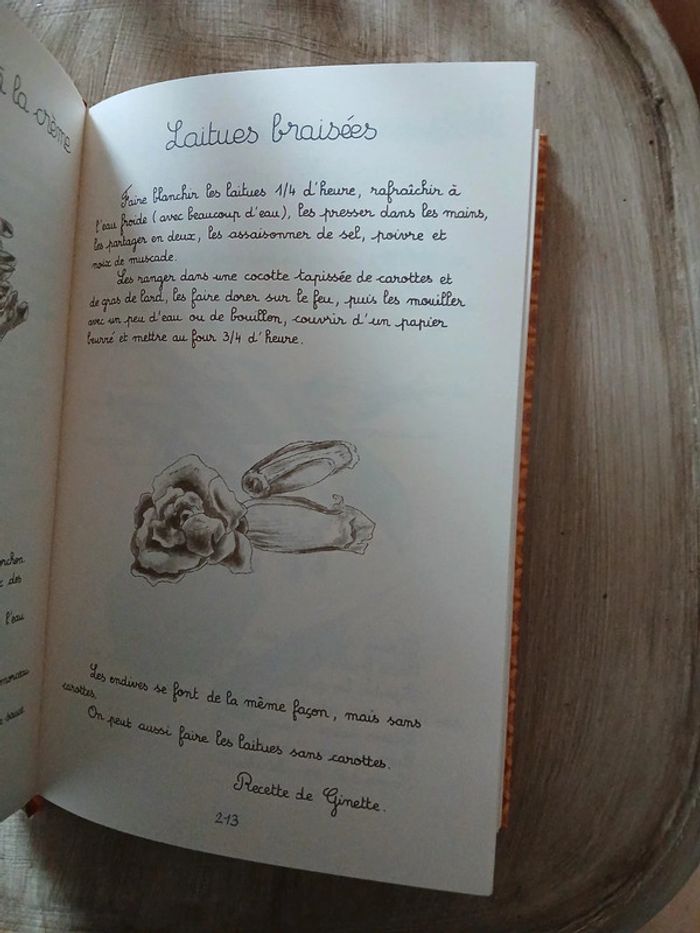 à la crème
Laitues braisées
Faire blanchir les laitues 1/4 d'heure, rafraîchir à
l'eau froide (avec beaucoup d'eau), les presser dans les mains,
les partager en deux, les assaisonner de sel, poivre et
noix de muscade.
Les ranger dans une cocotte tapissée de carottes et
de gras de lard, les faire dorer sur le feu, puis les mouiller
avec un peu d'eau ou de bouillon, couvrir d'un papier
beurré et mettre au four 3/4 d'heure.
des
l'eau
morceau
sauce
Les endives se font de la même façon, mais sans
carottes.
On peut aussi faire les laitues sans carottes.
Recette de Ginette.
213